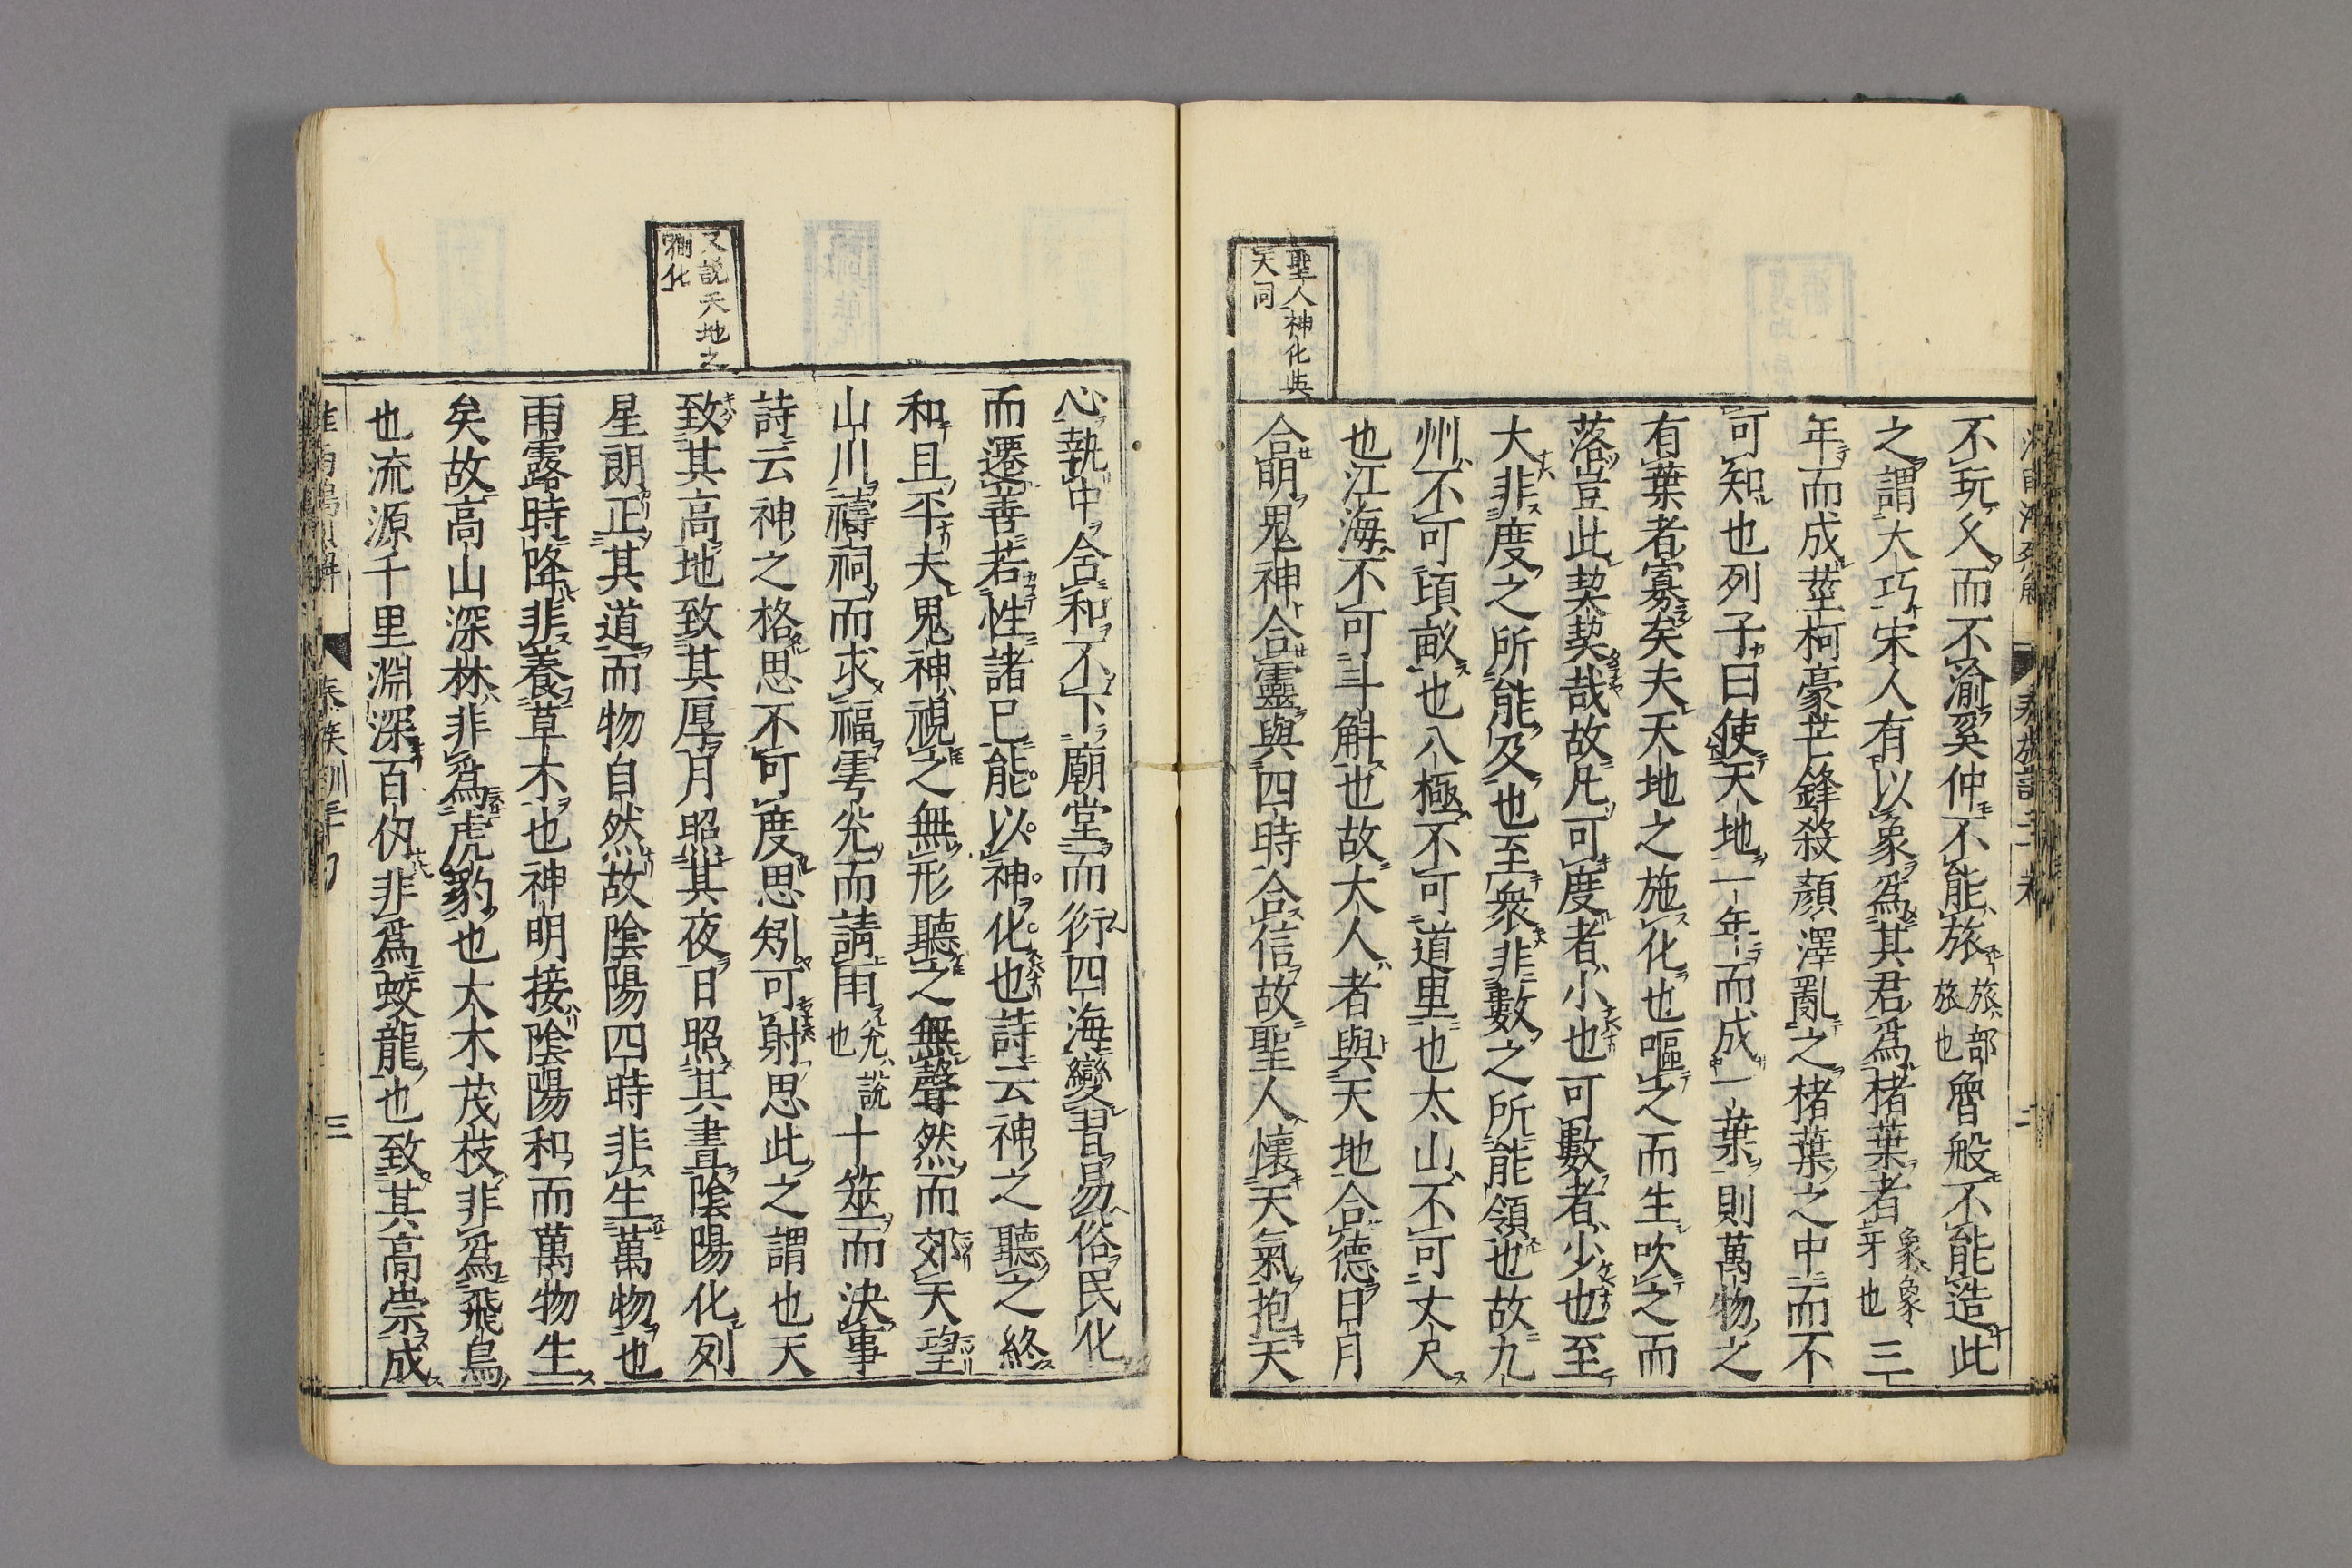 聖人神化與
天同
不玩父而不渝奚仲不能旅旅部旅也魯般不能造此
之謂大巧宋人有以象爲其君爲楮葉者象象牙也三
年而成莖柯豪芒鋒殺顏澤亂之楮葉之中而不
可知也列子曰使天地一年而成一葉則萬物之
有葉者寡矣夫天地之施化也嘔之而生吹之而
落豈此契契哉故凡可度者小也可數者少也至
大非度之所能及也至衆非數之所能領也故九
州不可頃畝也八極不可道里也太山不可丈尺
也江海不可斗斛也故大人者與天地合德日月
合明鬼神合靈與四時合信故聖人懷天氣抱天
又說天地之
神化
心執中含和不下廟堂而衍四海變習易俗民化
而遷善若性諸已能以神化也詩云神之聽之終
和且平夫鬼神視之無形聽之無聲然而郊天望
山川禱祠而求福雩兊而請雨兊說也卜筮而決事
詩云神之格思不可度思矧可射思此之謂也天
致其高地致其厚月照其夜日照其晝陰陽化列
星朗正其道而物自然故陰陽四時非生萬物也
雨露時降非養草木也神明接陰陽和而萬物生
矣故高山深林非爲虎豹也大木茂枝非爲飛鳥
也流源千里淵深百仭非爲蛟龍也致其高崇成
三